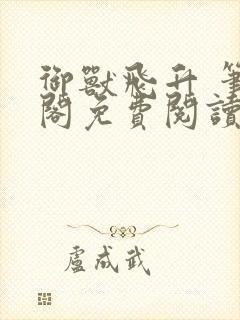 御獸飛升 筆
閣免費閱讀
盧成武